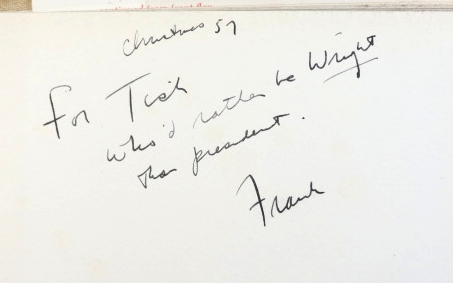 Christmas 57
For Tish
who'd rather be Wright
than president.
Frank